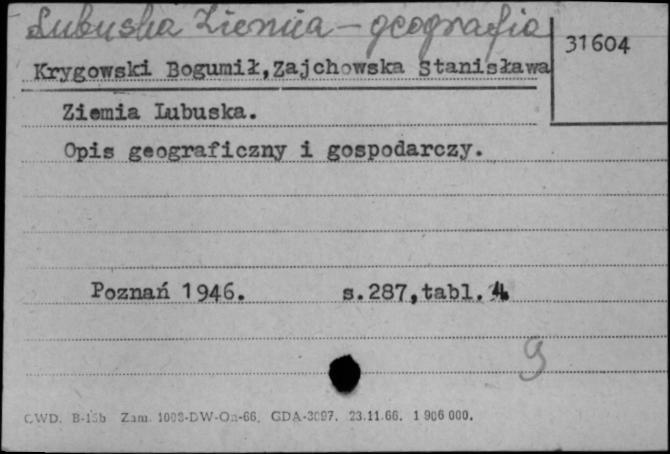 Lubuska Ziemia - geografia
31604
Krygowski Bogumił, Zajchowska Stanisława
Ziemia Lubuska.
Opis geograficzny i gospodarczy.
Poznań 1946. s.287,tabl.4
9
CWD. B-15b Zam. 1008-DW-Oa-66. GDA-3097. 23.11.66. 1 906 000.